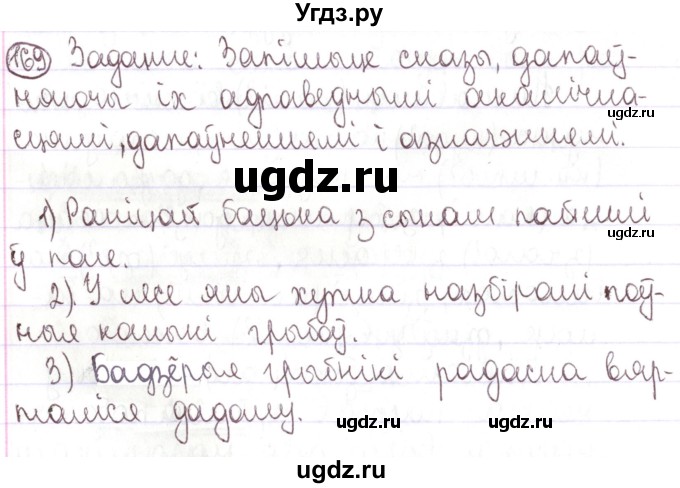 Угдз.ру
169 Задание: Запішыце сказы, дапаў-
няючы іх адпаведнымі акалічна-
сцямі, дапаўненнямі і азначэннямі.
ugdz.ru
ugdz.ru
ugdz.ru
1) Раніцай бацька з сынам пайшлі
ў поле.
ugdz.ru
2) У лесе яны хутка назбіралі поў-
ныя кошыкі грыбоў.
ugdz.ru
ugdz.ru
3) Бадзёрыя грыбнікі радасна вяр-
таліся дадому.
ugdz.ru
ugdz.ru